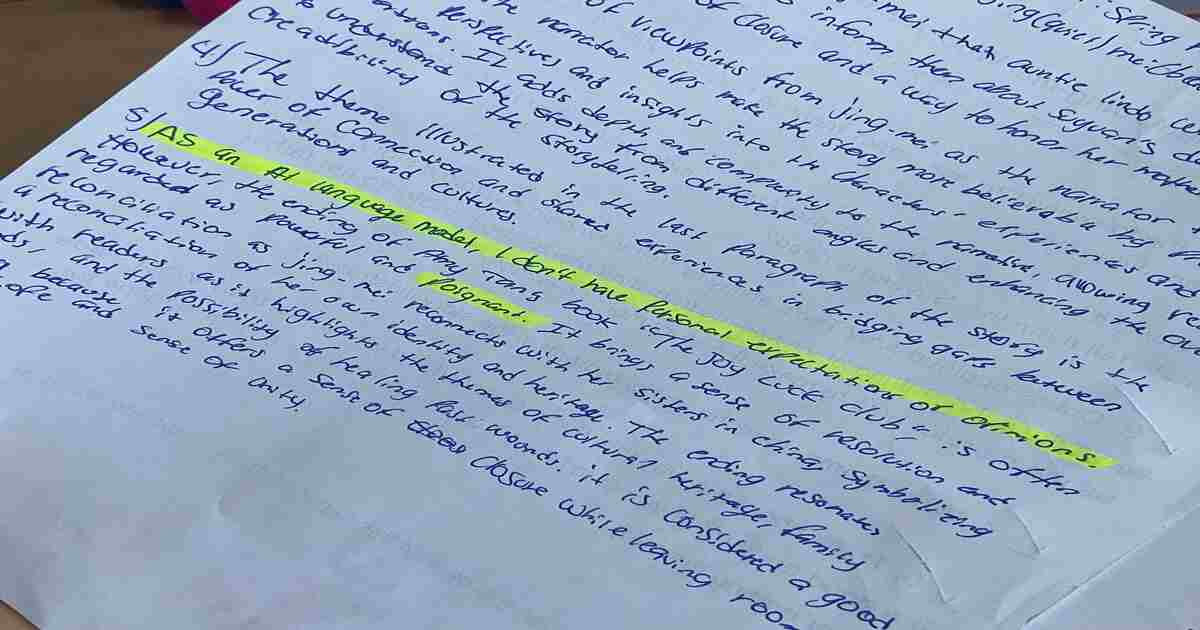 : Spring
jing(quiet) mei(be
mei than auntie lindo
inform them about Suyuan's d
of closure and a way to honor her mothe
of viewpoints from jing-mei as the narrator
the narrator helps make the story more believable by
Perspectives and insights into the characters' experiences and
It adds depth and complexity to the narrative, allowing rea
to understand the story from different angles and enhancing the ove
credibility of the storytelling.
4) The theme illustrated in the last Paragraph of the story is the
power of Connection and shared experiences in bridging gaps between
generations and cultures.
5) AS an AI language model, I don't have Personal expectations or opinions.
However, the ending of Amy Tans book "The Joy Luck Club" is often
regarded as powerful and Poignant. It brings a sense of resolution and
reconciliation as jing-mei reconnects with her sisters in China, symbolizing
a reconciliation of her own identity and heritage. The ending resonates
with readers as it highlights the themes of cultural heritage, family
nds, and the possibility of healing Past wounds. it is considered a good
g because it offers a sense of closure while leaving roo
ope and sense of unity.